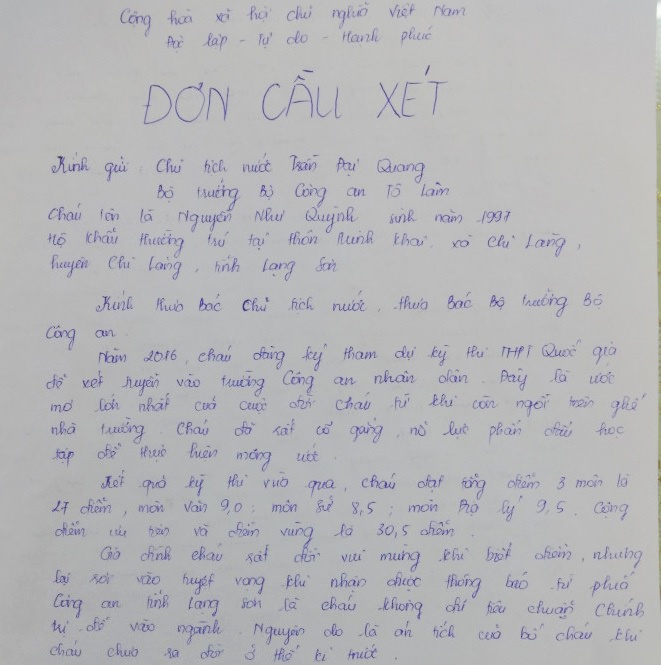 Cộng hoà xã hội chủ nghĩa Việt Nam
Độc lập - Tự do - Hạnh phúc
ĐƠN CẦU XÉT
Kính gửi : Chủ tịch nước Trần Đại Quang
Bộ trưởng Bộ Công an Tô Lâm
Cháu tên là Nguyễn Như Quỳnh sinh năm 1997
Hộ khẩu thường trú tại thôn Minh Khai, xã Chi Lăng,
huyện Chi Lăng, tỉnh Lạng Sơn
Kính thưa Bác Chủ tịch nước, thưa Bác Bộ trưởng Bộ
Công an.
Năm 2016, cháu đăng ký tham dự kỳ thi THPT Quốc gia
để xét tuyển vào trường Công an nhân dân. Đây là ước
mơ lớn nhất của cuộc đời cháu từ khi còn ngồi trên ghế
nhà trường. Cháu đã rất cố gắng, nỗ lực phấn đấu học
tập để thực hiện mong ước.
Kết quả kỳ thi vừa qua, cháu đạt tổng điểm 3 môn là
27 điểm, môn văn 9,0; môn sử 8,5; môn Địa lý 9,5. Cộng
điểm ưu tiên và điểm vùng là 30,5 điểm.
Gia đình cháu rất đỗi vui mừng khi biết điểm, nhưng
lại rơi vào tuyệt vọng khi nhận được thông báo từ phía
Công an tỉnh Lạng Sơn là cháu không đủ tiêu chuẩn Chính
trị để vào ngành. Nguyên do là án tích của bố cháu khi
cháu chưa ra đời ở thế kỉ trước.